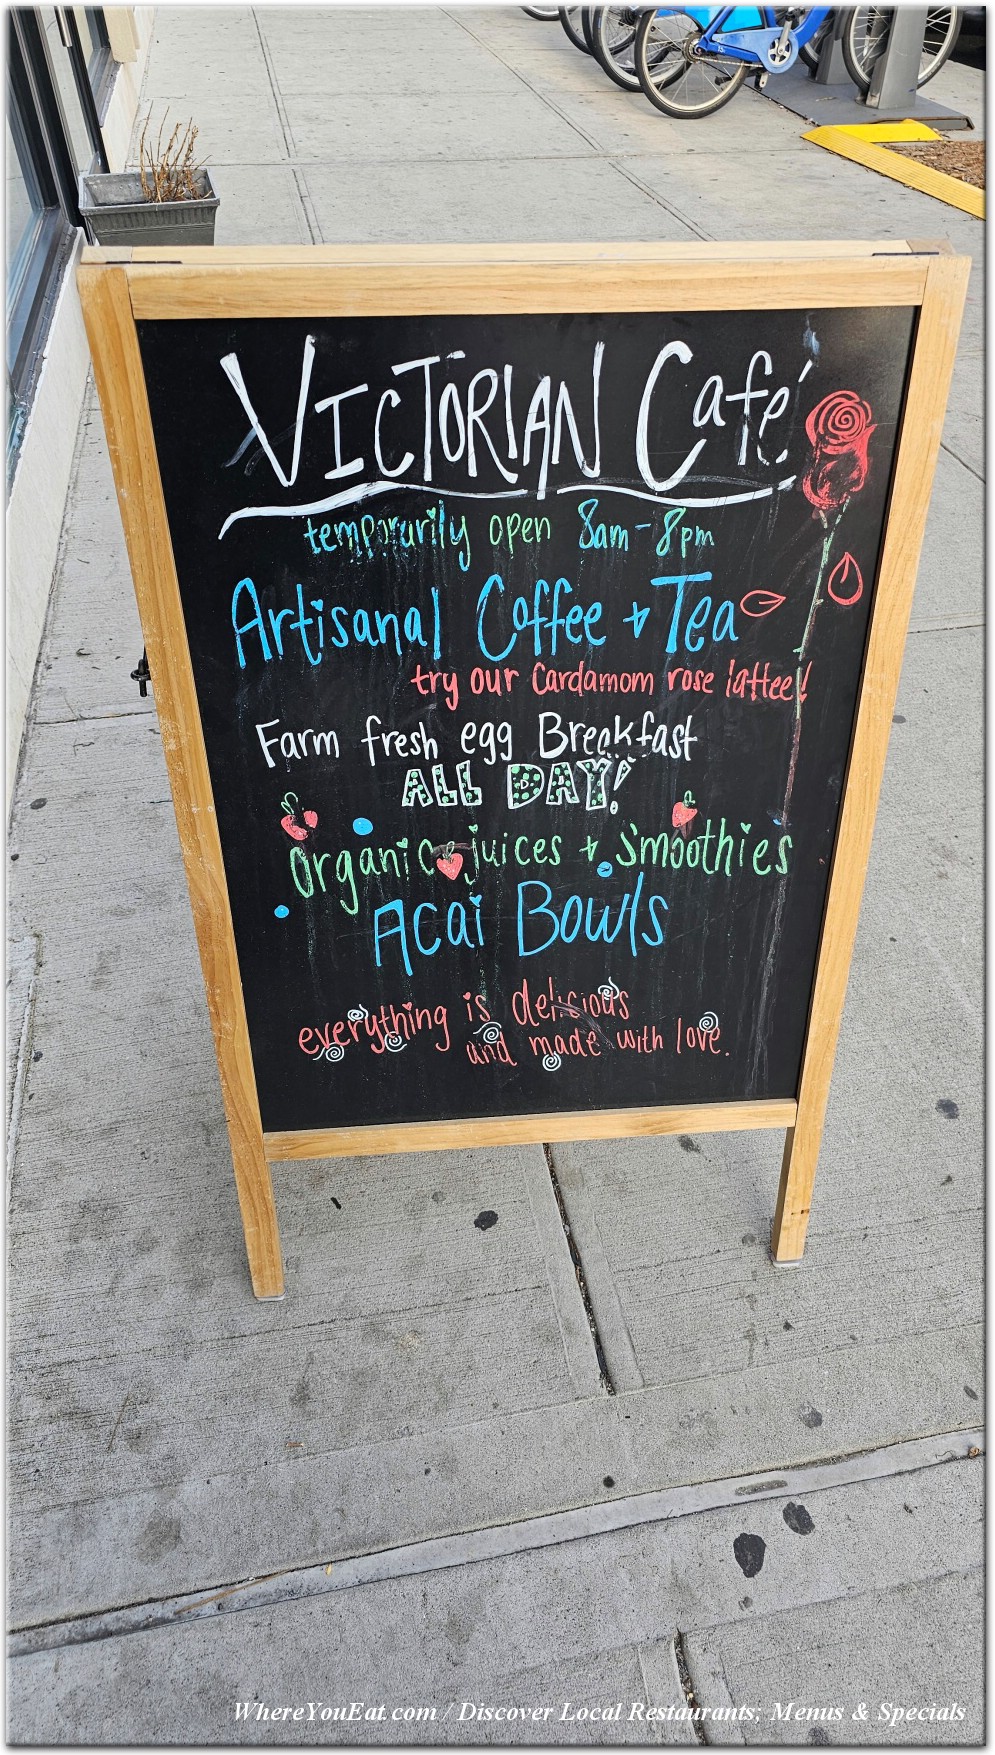 VICTORIAN Café
temporarily open 8am-8pm
Artisanal Coffee + Tea
try our Cardamom rose lattee!
Farm fresh egg Breakfast
ALL DAY!
organic juices + Smoothies
Acai Bowls
everything is delicious
and made with love.
WhereYouEat.com / Discover Local Restaurants; Menus & Specials